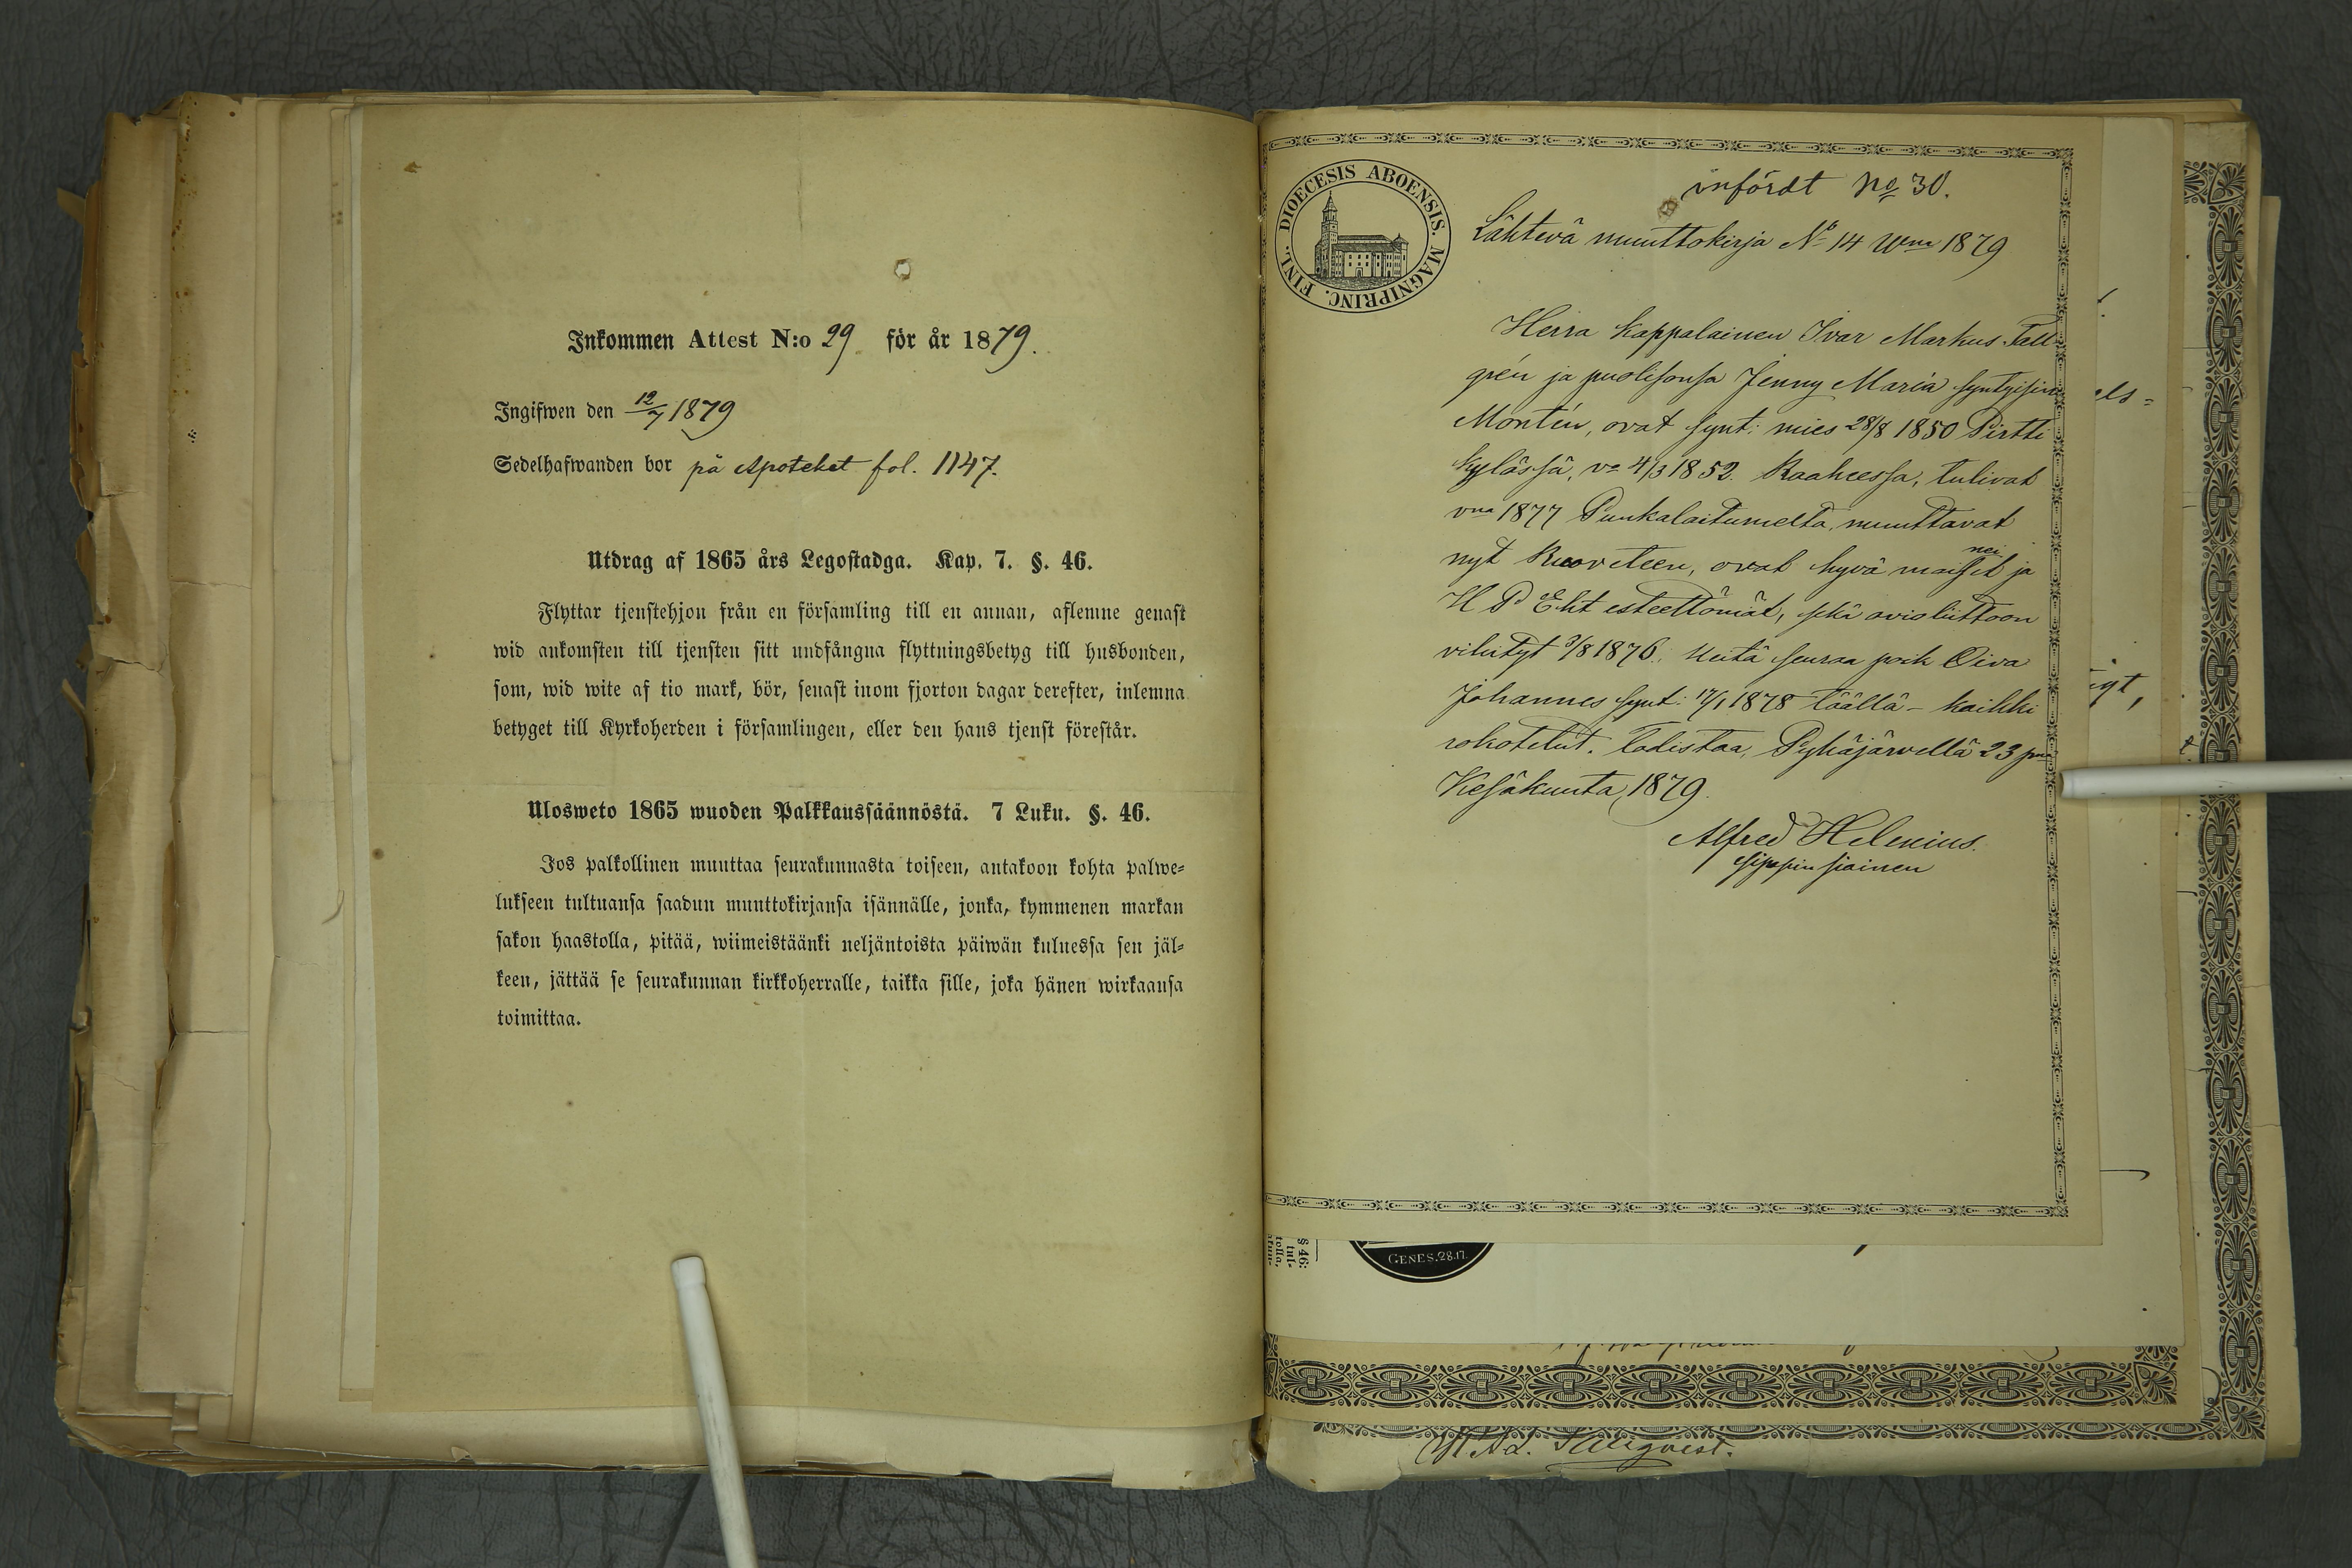 Inkommen Attest N:o 29 för år 1879.
Ingifwen den 12/7 1879
Sedelhafwanden bor på Apoteket fol. 1147.
Utdrag af 1865 års Legostadga. Kap. 7. §. 46.
Flyttar tjenstehjon från en församling till en annan, aflemne genast
wid ankomsten till tjensten sitt undfångna flyttningsbetyg till husbonden,
som, wid wite af tio mark, bör, senast inom fjorton dagar derefter, inlemna
betyget till Kyrkoherden i församlingen, eller den hans tjenst förestår.
Ulosweto 1865 wuoden Palkkaussäännöstä. 7 Luku. §. 46.
Jos palkollinen muuttaa seurakunnasta toiseen, antakoon kohta palwe-
lukseen tultuansa saadun muuttokirjansa isännälle, jonka, kymmenen markan
sakon haastolla, pitää, wiimeistäänki neljäntoista päiwän kuluessa sen jäl-
keen, jättää se seurakunnan kirkkoherralle, taikka sille, joka hänen wirkaansa
toimittaa.
DIOECESIS ABOENSIS. MAGNIPRINC. FINL.
infördt No 30.
Lähtevä muuttokirja No 14 Wna 1879
Herra Kappalainen Ivar Markus Tall-
grén ja puolisonsa Jenny Maria syntyisin
Montén, ovat synt: mies 28/8 1850 Pirtti
kylässä, vo 4/3 1852 Raaheessa, tulivat
vna 1877 Punkalaitumelta, muuttavat
nyt Ruoveteen, ovat hyvä mai(nei)set ja
H P Eht esteettömät, sekä avioliittoon
vihityt 3/8 1876. Heitä seuraa poik Oiva
Johannes synt: 17/1 1878 täällä - kaikki
rokotetut. Todistaa, Pyhäjärvellä 23 pnä
Kesäkuuta, 1879.
Alfred Helenius.
sijainen
§ 46:
tul-
tolla,
GENES.28.17.
els=
igt,